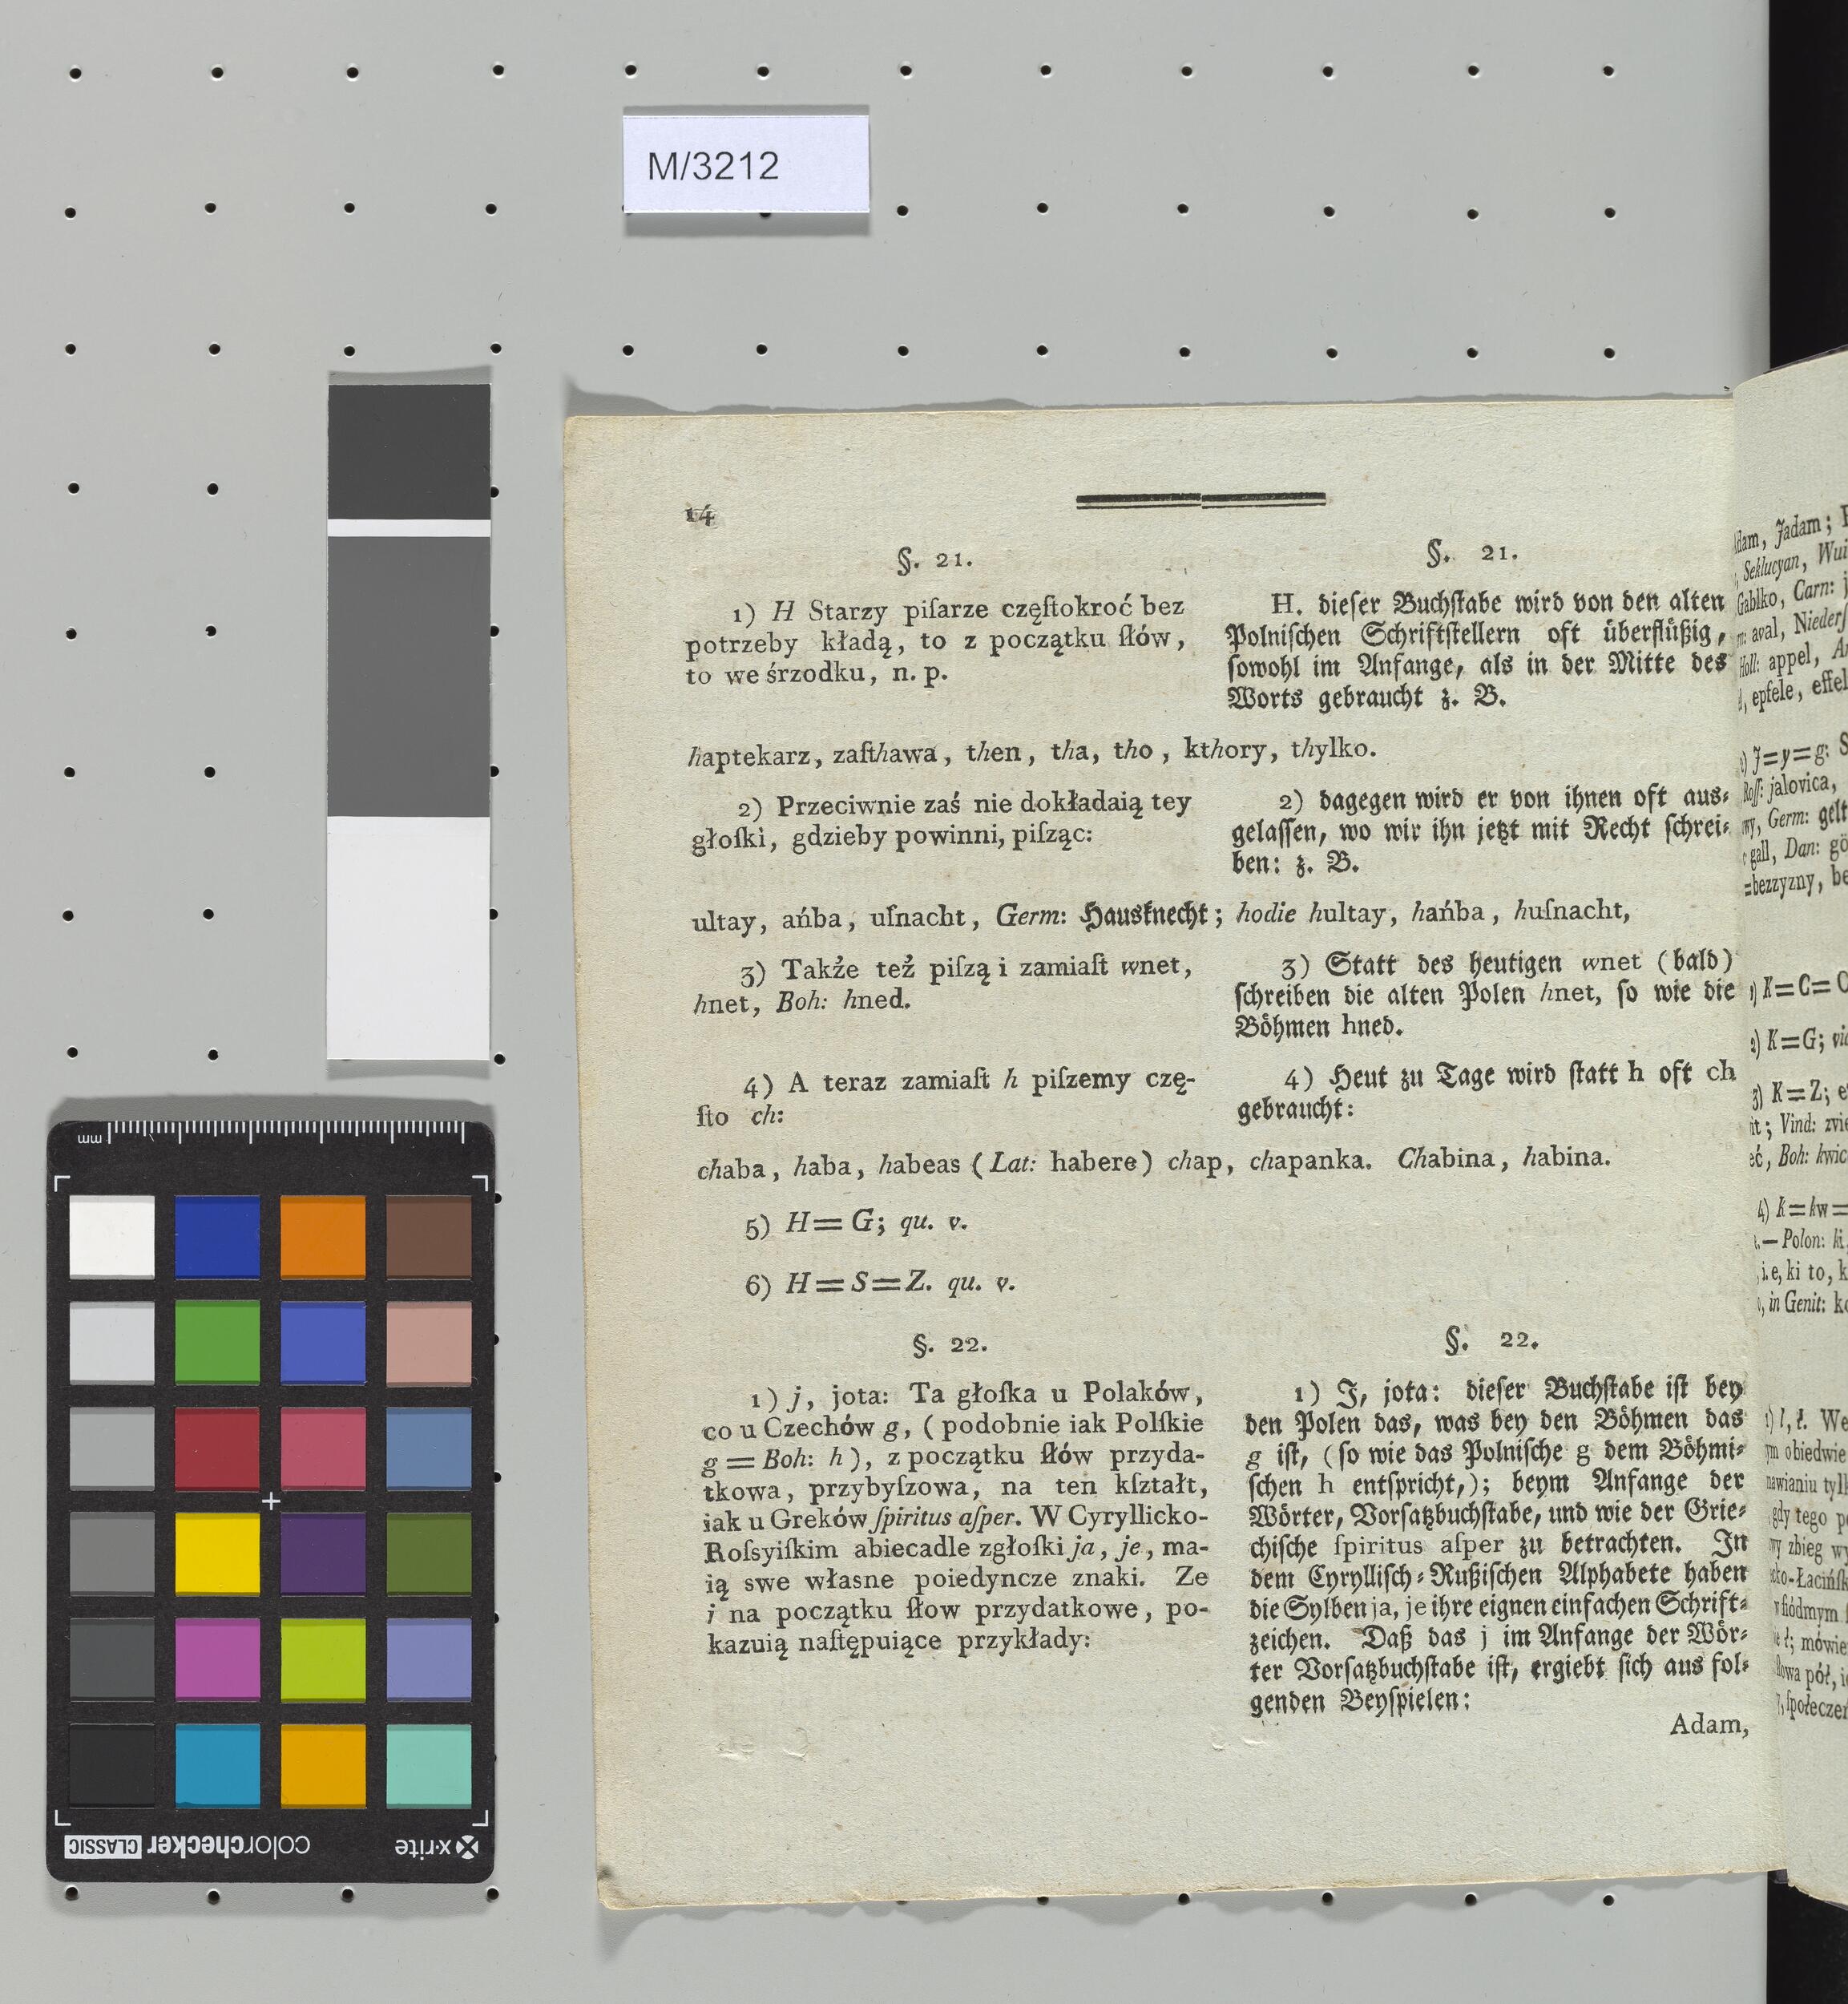 M/3212
14
§. 21.
1) H Starzy piſarze częſtokroć bez
potrzeby kładą, to z początku ſłów,
to we śrzodku, n. p.
§. 21.
H. dieſer Buchſtabe wird von den alten
Polniſchen Schriftſtellern oft überflüßig,
ſowohl im Anfange, als in der Mitte des
Worts gebraucht z. B.
haptekarz, zaſthawa, then, tha, tho, kthory, thylko.
2) Przeciwnie zaś nie dokładaią tey
głoſki, gdzieby powinni, piſząc:
2) dagegen wird er von ihnen oft aus-
gelaſſen, wo wir ihn jetzt mit Recht ſchrei-
ben: z. B.
ultay, ańba, uſnacht, Germ: Hausknecht; hodie hultay, hańba, huſnacht,
3) Także też piſzą i zamiaſt wnet,
hnet, Boh: hned.
3) Statt des heutigen wnet (bald)
ſchreiben die alten Polen hnet, ſo wie die
Böhmen hned.
4) A teraz zamiaſt h piſzemy czę-
ſto ch:
4) Heut zu Tage wird ſtatt h oft ch
gebraucht:
chaba, haba, habeas (Lat: habere) chap, chapanka. Chabina, habina.
5) H=G; qu. v.
6) H=S=Z. qu. v.
§. 22.
1) j, jota: Ta głoſka u Polaków,
co u Czechów g, (podobnie iak Polſkie
g = Boh: h), z początku ſłów przyda-
tkowa, przybyſzowa, na ten kſztałt,
iak u Greków ſpiritus aſper. W Cyryllicko-
Roſsyiſkim abiecadle zgłoſki ja, je, ma-
ią swe własne poiedyncze znaki. Ze
j na początku ſłow przydatkowe, po-
kazuią naſtępuiące przykłady:
§. 22.
1) J, jota: dieſer Buchſtabe iſt bey
den Polen das, was bey den Böhmen das
g iſt, (ſo wie das Polniſche g dem Böhmi-
ſchen h entſpricht,); beym Anfange der
Wörter, Vorſatzbuchſtabe, und wie der Grie-
chiſche ſpiritus aſper zu betrachten. In
dem Cyrylliſch-Rußiſchen Alphabete haben
die Sylben ja, je ihre eignen einfachen Schrift-
zeichen. Daß das j im Anfange der Wör-
ter Vorſatzbuchſtabe iſt, ergiebt ſich aus fol-
genden Beyſpielen:
Adam,
Jadam;
Seklucyan, Wui
Gablko, Carn: j
aval, Niederſ
Holl: appel,
epfele, effel
J=y=g: S
Roſſ: jalovica,
Germ: gelt
gall, Dan: gö
=bezzyzny, be
1) K=C=C
2) K=G;
3) K=Z; e
Vind: zvi
Boh: kwic
4) k=kw=
— Polon: ki
i.e, ki to, k
in Genit: k
l, ł. We
obiedwie
gdy tego p
zbieg wy
mówie
pół, i
ſpołeczeń
mm
x·rite
colorchecker CLASSIC